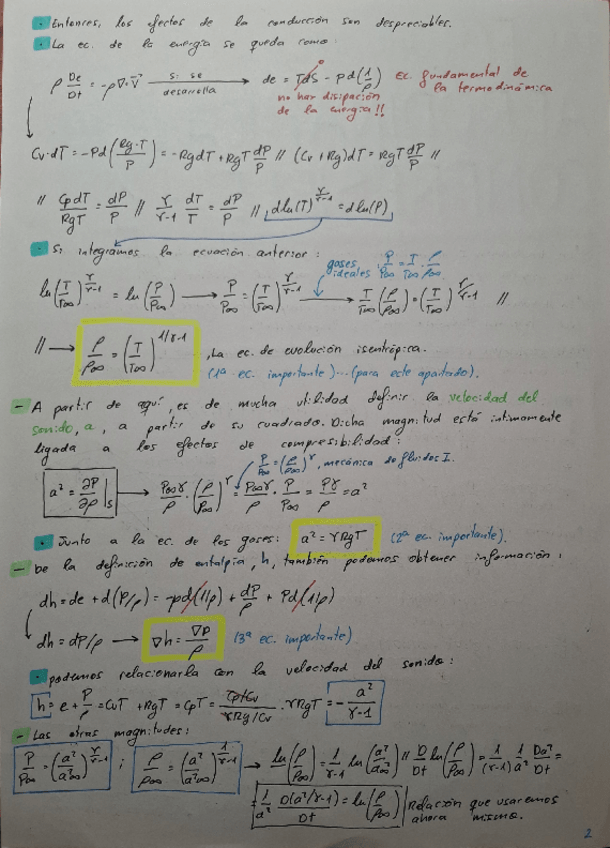 · Entonces, los efectos de la conducción son despreciables.
· La ec. de la energía se queda como:
ρ De/Dt = -ρ∇·v̄ → si se desarrolla → de = TdS - Pd(1/ρ) Ec. fundamental de la termodinámica
0
no hay disipación de la energía!!
Cv·dT = -Pd(Rg·T/P) = -RgdT + RgT dP/P // (Cv + Rg)dT = RgT dP/P //
// CpdT/RgT = dP/P // γ/γ-1 dT/T = dP/P //, dln(T)^γ/γ-1 = dln(P)
· Si integramos la ecuación anterior:
gases ideales: P/P∞ = T/T∞ · ρ/ρ∞
ln(T/T∞)^γ/γ-1 = ln(P/P∞) → P/P∞ = (T/T∞)^γ/γ-1 → T/T∞(ρ/ρ∞) = (T/T∞)^γ/γ-1 //
// → ρ/ρ∞ = (T/T∞)^1/γ-1, La ec. de evolución isentrópica.
(1ª ec. importante)...(para este apartado).
- A partir de aquí, es de mucha utilidad definir la velocidad del
sonido, a, a partir de su cuadrado. Dicha magnitud está íntimamente
ligada a los efectos de compresibilidad:
P/P∞ = (ρ/ρ∞)^γ, mecánica de fluidos I.
a² = ∂P/∂ρ|s → P∞γ/ρ · (ρ/ρ∞)^γ = P∞γ/ρ · P/P∞ = Pγ/ρ = a²
· Junto a la ec. de los gases: a² = γRgT (2ª ec. importante).
- De la definición de entalpía, h, también podemos obtener información:
dh = de + d(P/ρ) = -pd(1/ρ) + dP/ρ + Pd(1/ρ)
dh = dP/ρ → ∇h = ∇p/ρ (3ª ec. importante)
· podemos relacionarla con la velocidad del sonido:
h = e + P/ρ = CvT + RgT = CpT = Cp/Cv/γRg/Cv · γRgT = - a²/γ-1
- Las otras magnitudes:
P/P∞ = (a²/a²∞)^γ/γ-1 ; ρ/ρ∞ = (a²/a²∞)^1/γ-1 → ln(ρ/ρ∞) = 1/γ-1 ln(a²/a²∞) // D/Dt ln(ρ/ρ∞) = 1/(γ-1) 1/a² Da²/Dt =
= 1/a² D(a²/γ-1)/Dt = ln(ρ/ρ∞) Relación que usaremos
ahora mismo.
2